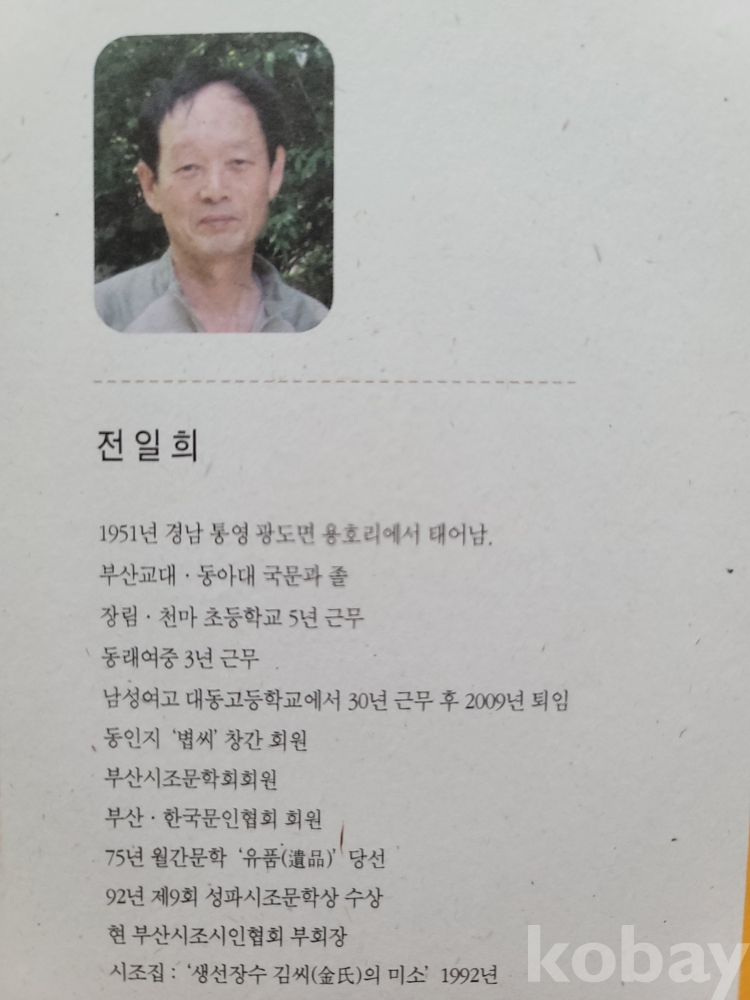 전일희
1951년 경남 통영 광도면 용호리에서 태어남.
부산교대 · 동아대 국문과 졸
장림 · 천마 초등학교 5년 근무
동래여중 3년 근무
남성여고 대동고등학교에서 30년 근무 후 2009년 퇴임
동인지 '볍씨' 창간 회원
부산시조문학회회원
부산 · 한국문인협회 회원
75년 월간문학 '유품(遺品)' 당선
92년 제9회 성파시조문학상 수상
현 부산시조시인협회 부회장
시조집 : '생선장수 김씨(金氏)의 미소' 1992년
kobay